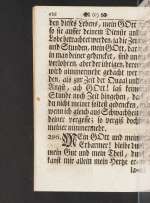 den dieses Lebens, mein GOtt
so sie ausser deinem Dienst und
Lob verbracht werden, ist die Zeit
und Stunden, mein GOtt, dar
in man deiner gedencket, sind un
verlohren, aber der übrigen, deren
wird nimmermehr gedacht wer
den, als zur Zeit der Quaal und
Angst, ach GOtt! laß keine
Stunde noch Zeit hingehen, da
du nicht meiner sollest gedencken,
wenn ich gleich aus Schwachheit
deiner vergesse, so vergiß doch
meiner nimmermehr.
MEin GOtt und mein
Erbarmer! bleibe du
mein Gut und mein Theil, du
kanst mir allein mein Hertze er-